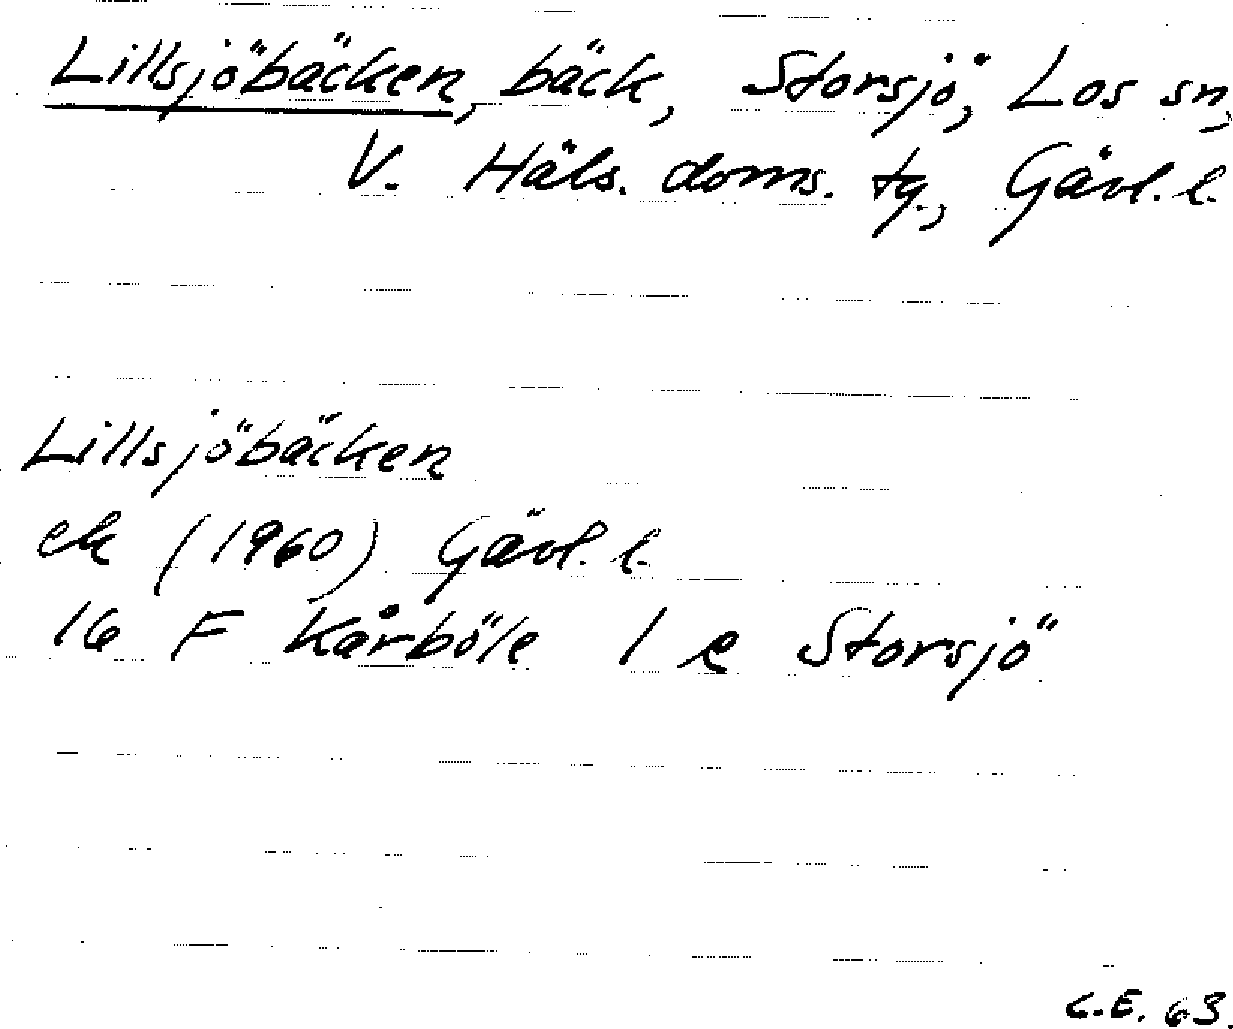 Lillsjöbäcken, bäck, Storsjö, Los sn,
V. Häls. doms. tg., Gävl. l.
Lillsjöbäcken
ek (1960) Gävl. l.
16 F Kårböle 1 e Storsjö
C.E. 63.